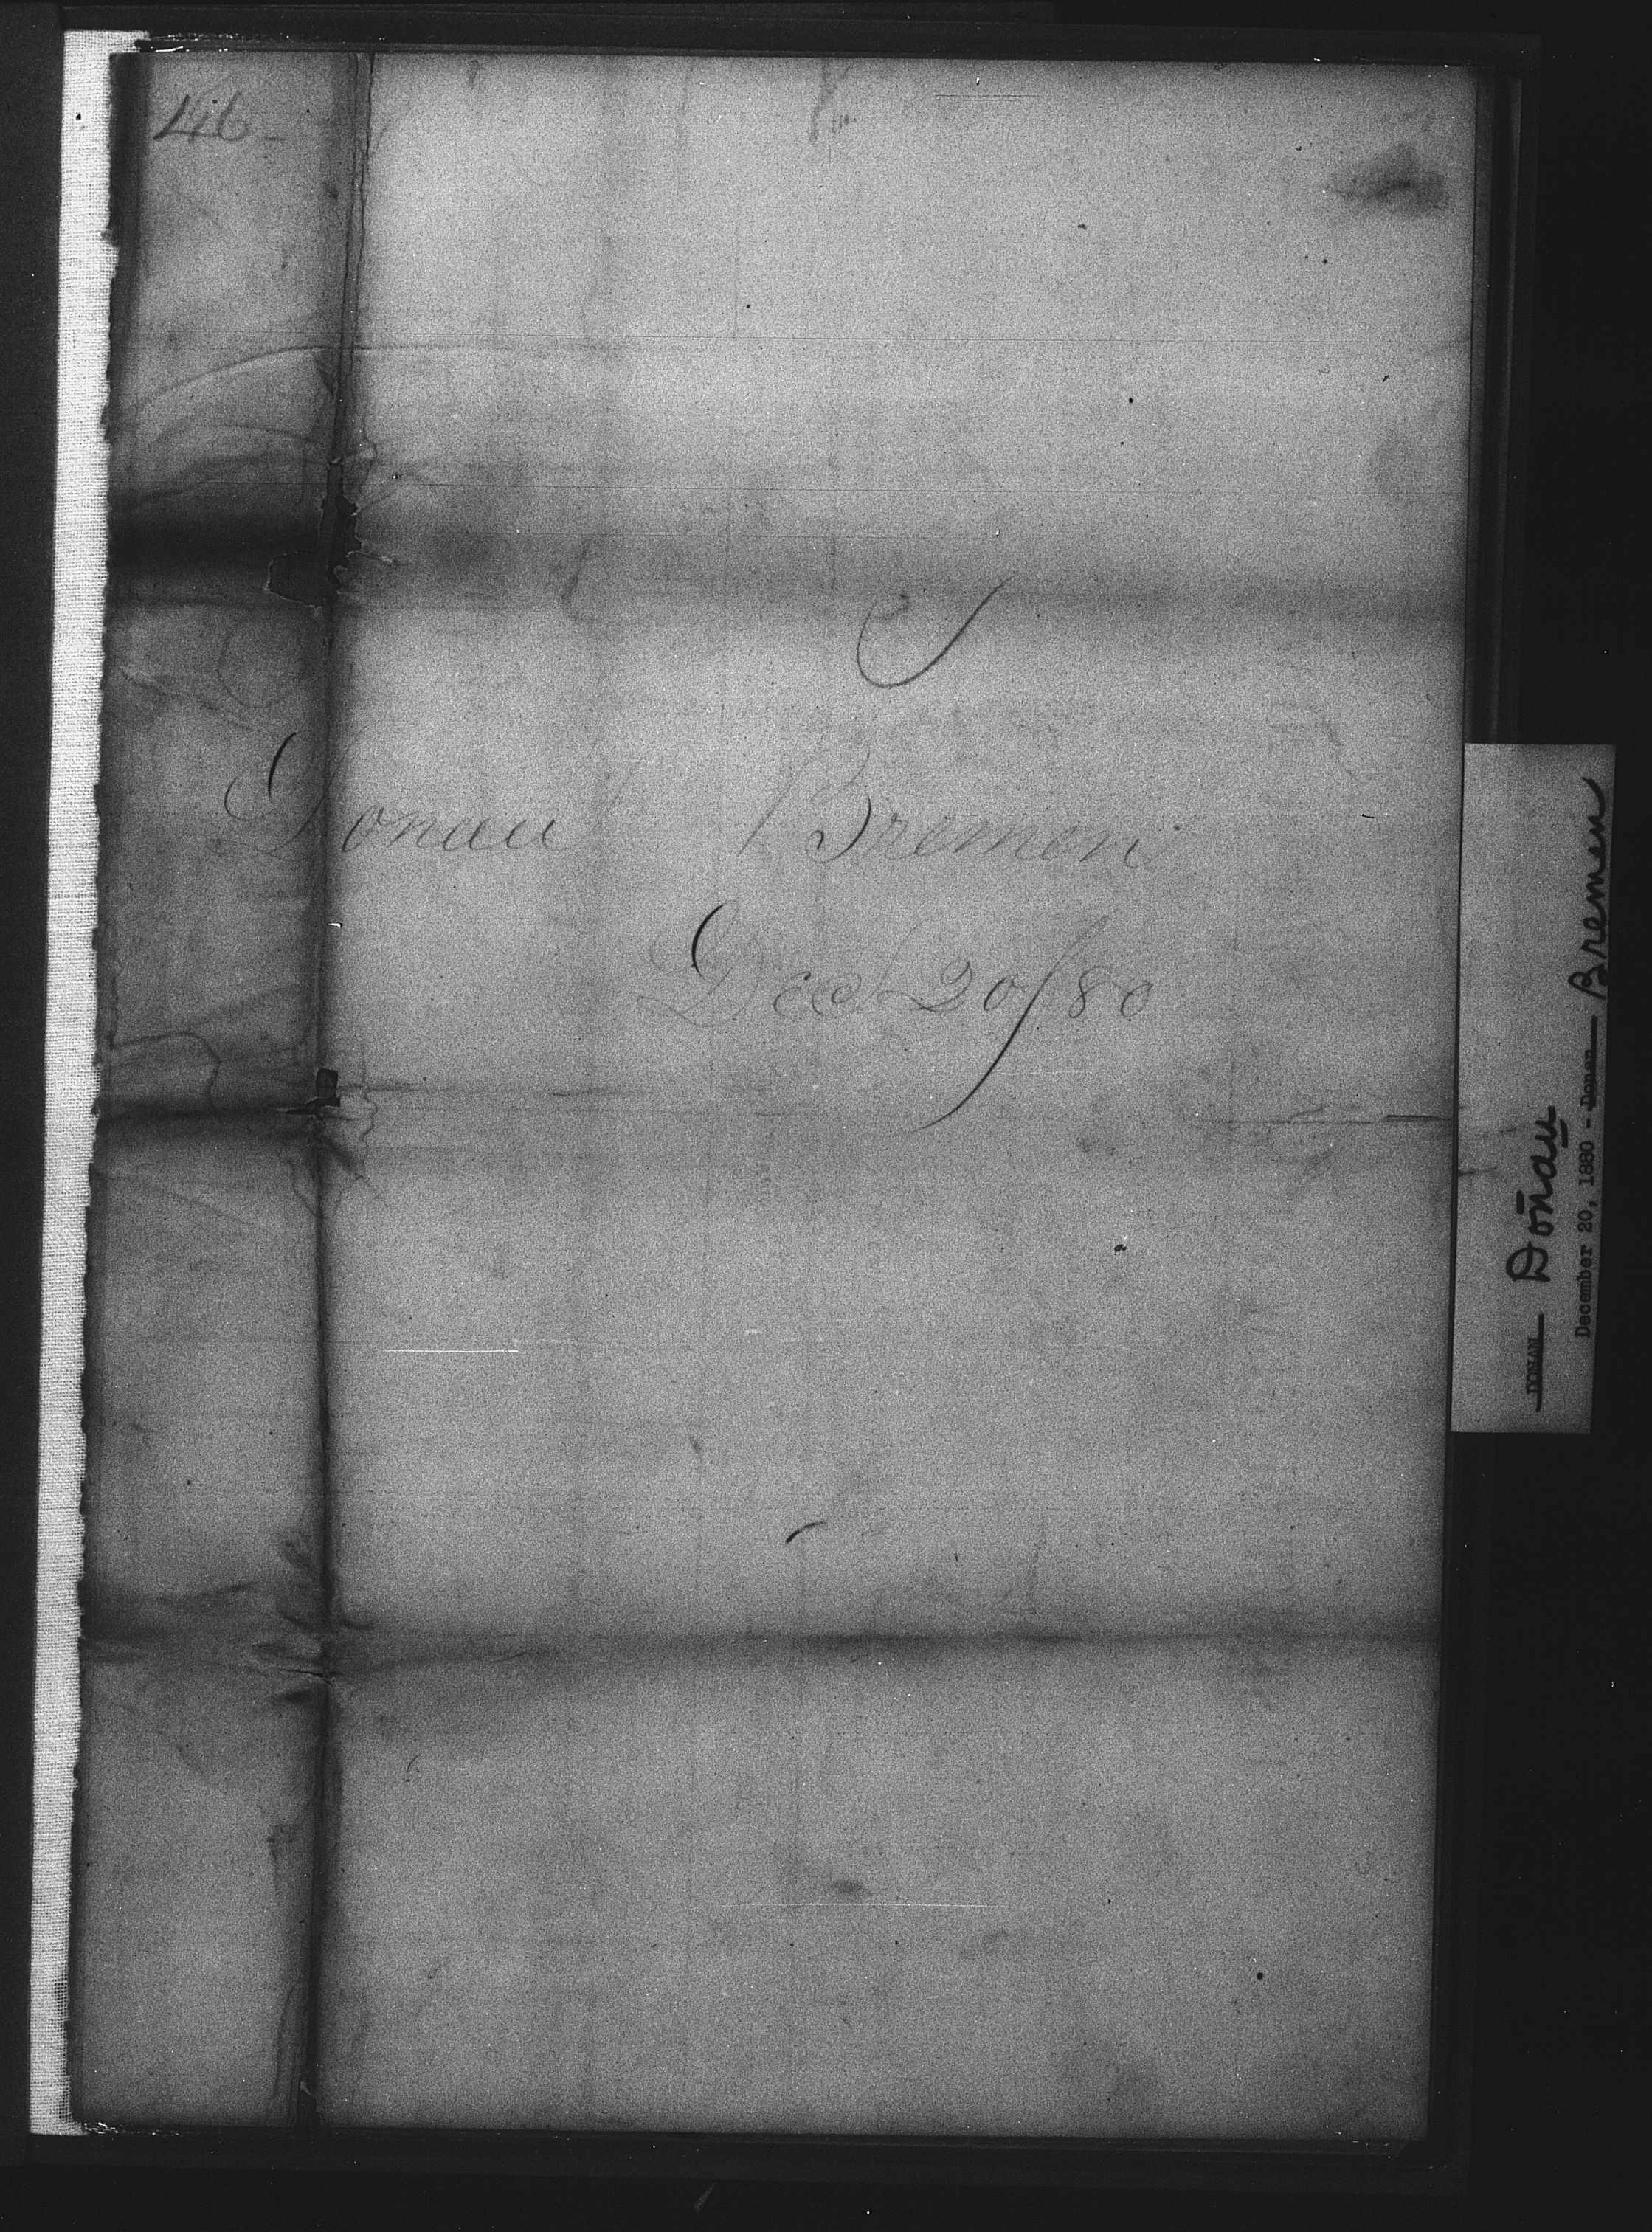 146
Donau Bremen
Dec 20/80
DONAN Donau
December 20, 1880 - Donan Bremen